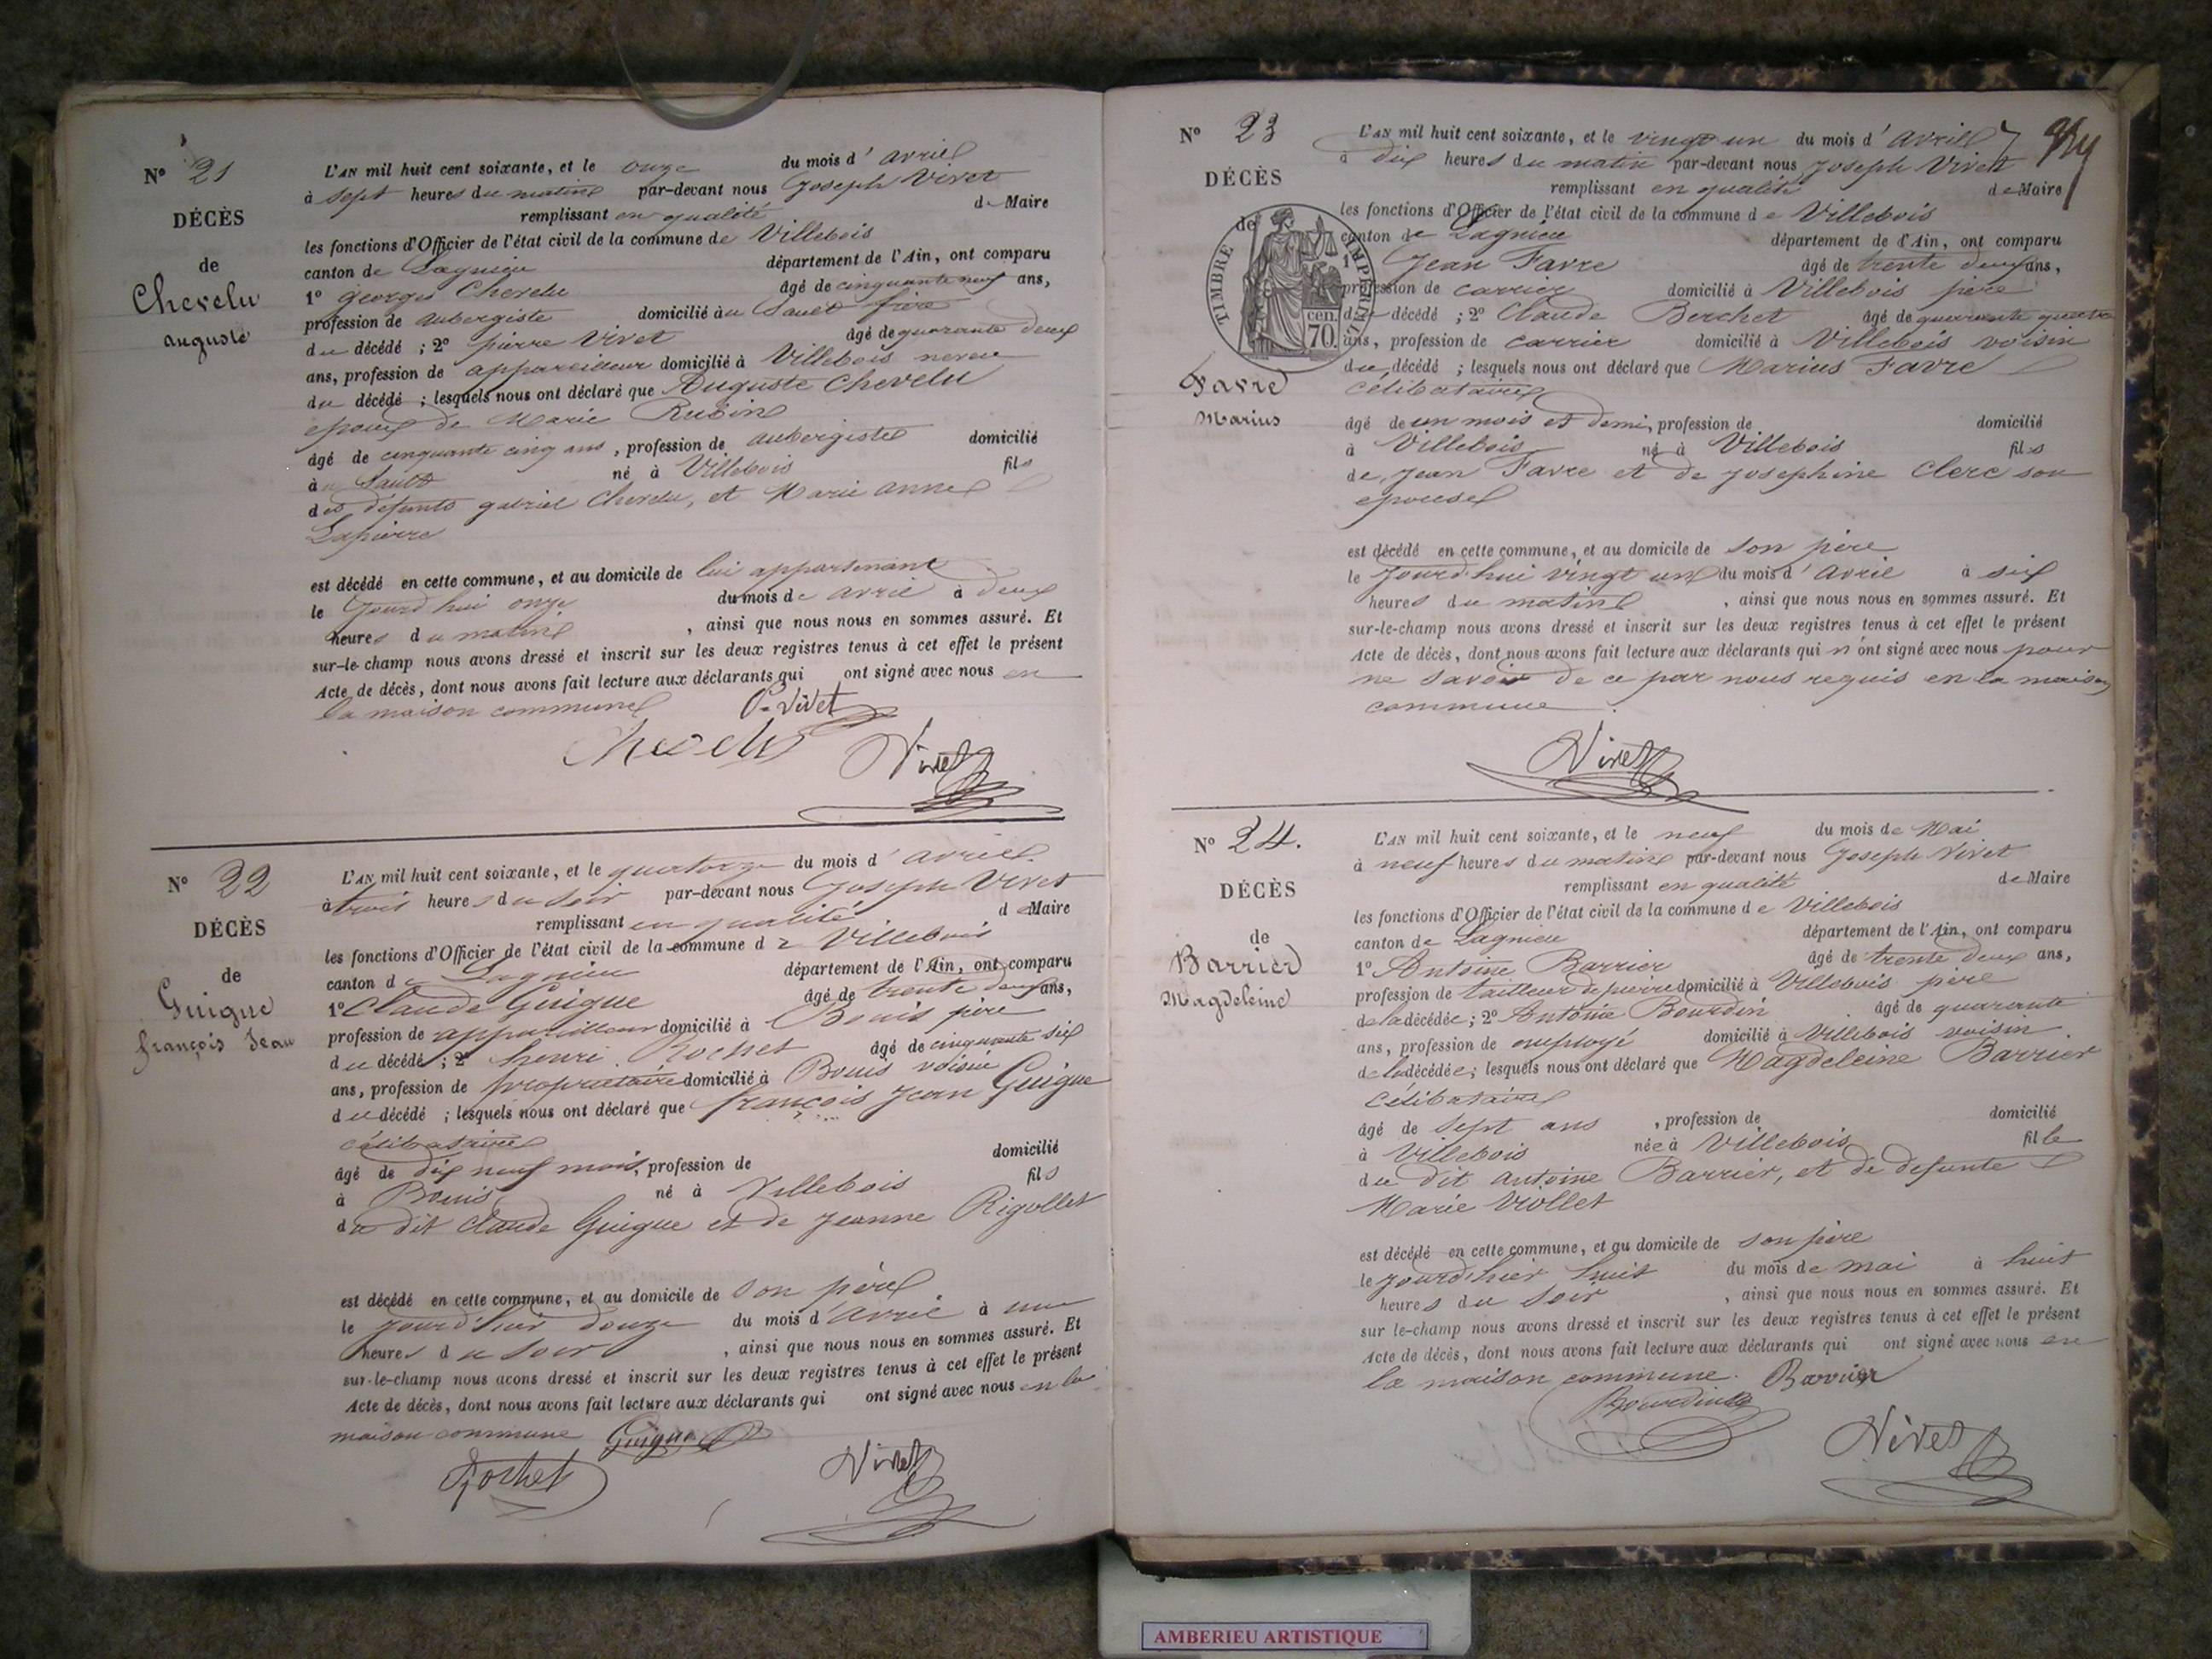 Nº 21
DÉCÈS
de
Chevelu
auguste
L'AN mil huit cent soixante, et le onze du mois d'avril
à sept heures du matin par-devant nous Joseph Vivet
remplissant en qualité de Maire
les fonctions d'Officier de l'état civil de la commune de Villebois
canton de Lagnieu département de l'Ain, ont comparu
1º georges Chevelu âgé de cinquante neuf ans,
profession de aubergiste domicilié au Sault frère
du décédé ; 2º pierre Vivet âgé de quarante deux
ans, profession de appareilleur domicilié à Villebois neveu
du décédé ; lesquels nous ont déclaré que Auguste Chevelu
epoux de Marie Rubin
âgé de cinquante cinq ans, profession de aubergiste domicilié
au Sault né à Villebois fils
des défunts gabriel Chevelu, et Marie anne
Lapierre
est décédé en cette commune, et au domicile de lui appartenant
le jourd'hui onze du mois de avril à deux
heures du matin, ainsi que nous nous en sommes assuré. Et
sur-le-champ nous avons dressé et inscrit sur les deux registres tenus à cet effet le présent
Acte de décès, dont nous avons fait lecture aux déclarants qui ont signé avec nous en
la maison commune P. Vivet
Chevelu Vivet
Nº 22
DÉCÈS
de
Guigue
françois Jean
L'AN mil huit cent soixante, et le quatorze du mois d'avril
à trois heures du soir par-devant nous Joseph Vivet
remplissant en qualité de Maire
les fonctions d'Officier de l'état civil de la commune de Villebois
canton de Lagnieu département de l'Ain, ont comparu
1º Claude Guigue âgé de trente deux ans,
profession de appareilleur domicilié à Bouis père
du décédé ; 2º henri Rochet âgé de cinquante six
ans, profession de propriétaire domicilié à Bouis voisin
du décédé ; lesquels nous ont déclaré que françois Jean Guigue
célibataire
âgé de dix neuf mois, profession de domicilié
à Bouis né à Villebois fils
du dit Claude Guigue et de Jeanne Rigollet
est décédé en cette commune, et au domicile de son père
le jourd'hier douze du mois d'avril à une
heures du soir, ainsi que nous nous en sommes assuré. Et
sur-le-champ nous avons dressé et inscrit sur les deux registres tenus à cet effet le présent
Acte de décès, dont nous avons fait lecture aux déclarants qui ont signé avec nous en la
maison commune Guigue
Rochet Vivet
Nº 23
DÉCÈS
de
TIMBRE IMPÉRIAL
70 cen.
Favre
Marius
L'AN mil huit cent soixante, et le vingt un du mois d'avril
à dix heures du matin par-devant nous Joseph Vivet
remplissant en qualité de Maire
les fonctions d'Officier de l'état civil de la commune de Villebois
canton de Lagnieu département de l'Ain, ont comparu
1º Jean Favre âgé de trente deux ans,
profession de carrier domicilié à Villebois père
du décédé ; 2º Claude Berchet âgé de quarante quatre
ans, profession de carrier domicilié à Villebois voisin
du décédé ; lesquels nous ont déclaré que Marius Favre
célibataire
âgé de un mois et demi, profession de domicilié
à Villebois né à Villebois fils
de Jean Favre et de Josephine Clerc son
epouse
est décédé en cette commune, et au domicile de son père
le jourd'hui vingt un du mois d'avril à six
heures du matin, ainsi que nous nous en sommes assuré. Et
sur-le-champ nous avons dressé et inscrit sur les deux registres tenus à cet effet le présent
Acte de décès, dont nous avons fait lecture aux déclarants qui n'ont signé avec nous pour
ne savoir de ce par nous requis en la maison
commune
Vivet
Nº 24.
DÉCÈS
de
Barrier
Magdeleine
L'AN mil huit cent soixante, et le neuf du mois de Mai
à neuf heures du matin par-devant nous Joseph Vivet
remplissant en qualité de Maire
les fonctions d'Officier de l'état civil de la commune de Villebois
canton de Lagnieu département de l'Ain, ont comparu
1º Antoine Barrier âgé de trente deux ans,
profession de tailleur de pierre domicilié à Villebois père
de la décédée ; 2º Antoine Bourdin âgé de quarante
ans, profession de employé domicilié à Villebois voisin
de la décédée ; lesquels nous ont déclaré que Magdeleine Barrier
Célibataire
âgé de sept ans, profession de domicilié
à Villebois née à Villebois fille
du dit antoine Barrier, et de defunte
Marie Viollet
est décédé en cette commune, et au domicile de son père
le jourd'hier huit du mois de mai à huit
heures du soir, ainsi que nous nous en sommes assuré. Et
sur le-champ nous avons dressé et inscrit sur les deux registres tenus à cet effet le présent
Acte de décès, dont nous avons fait lecture aux déclarants qui ont signé avec nous en
la maison commune. Barrier
Bourdin
Vivet
AMBERIEU ARTISTIQUE